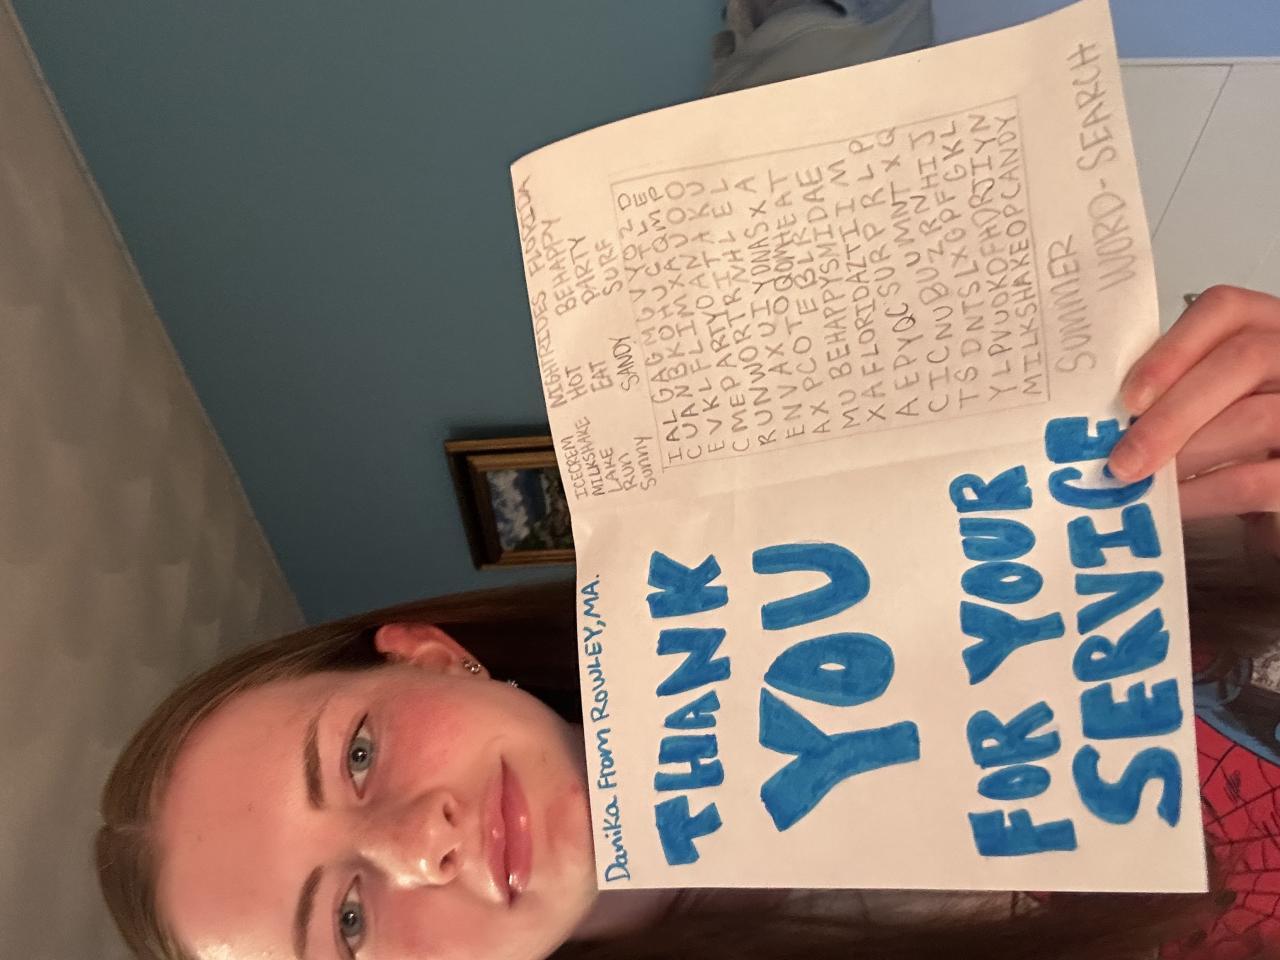 Danika From ROWLEY, MA.
THANK
YOU
FOR YOUR
SERVICE
ICECREM NIGHTRIDES FLORIDA
MILKSHAKE HOT BEHAPPY
LAKE EAT PARTY
RUN SANDY SURF
Sunny
IALGAGMUVYOZD
CUANBKOHJCTLEP
EVKLFLIMXAQMO
CMEPARTYOINJOU
RUNWORTRITAKL
ENVAXUIYDNASXA
AXPCOTEBLREAT
MUBEHAPPYSMIDAE
XAFLORIDAZTIIM
AEPYQCSURPRLP
CICNUBUZRNHIJ
TSDNTSLXGPFGKL
YLPVUOKOFHDRJIYN
MILKSHAKEOPCANDY
SUMMER
WORD-SEARCH